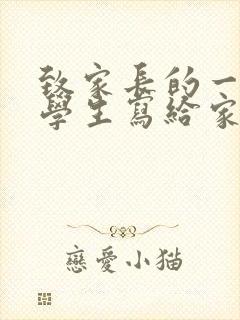 致家長的一
學生寫給家
戀愛小猫